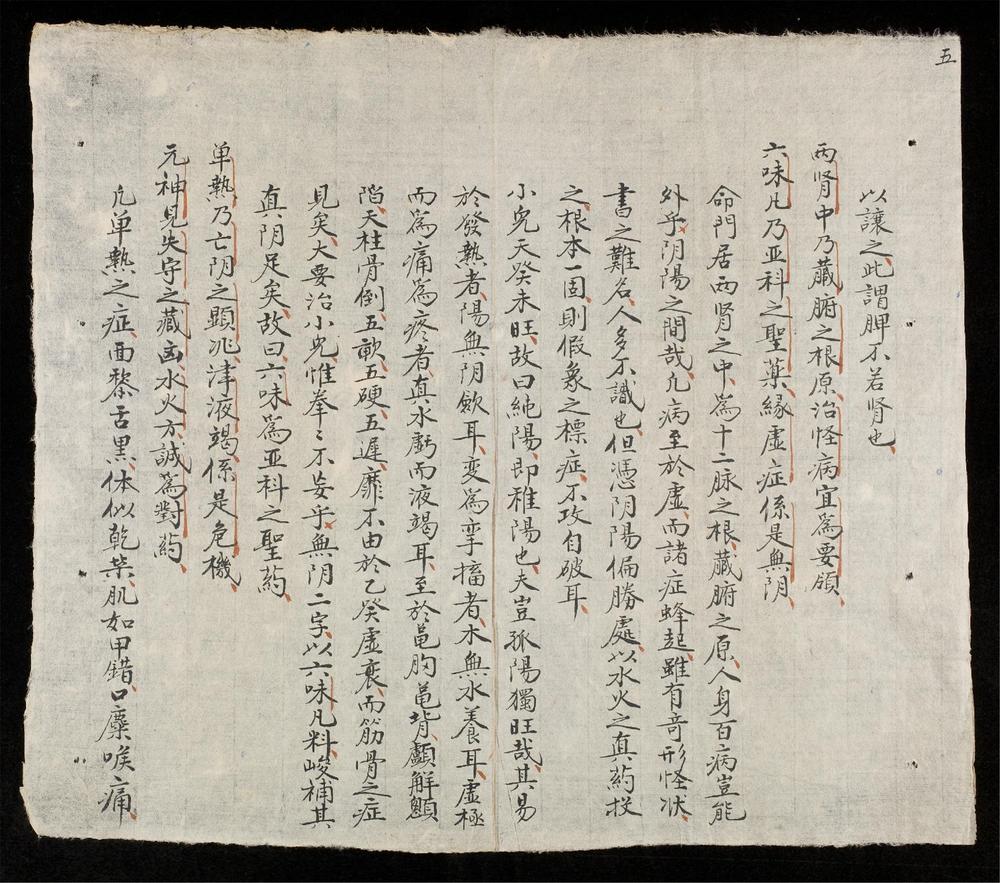 五
以讓之此謂脾不若肾也
两肾中乃臓腑之根原治怪病宜為要領
六味凡乃亚科之聖薬縁虚症係是無阴
命門居两肾之中為十二脉之根臓腑之原人身百病豈能
外乎阴陽之間哉凡病至於虚而諸症蜂起雖有竒形怪状
書之難名人多不識也但憑阴陽偏勝處以水火之真药投
之根本一固則假象之標症不攻自破耳
小児天癸未旺故曰純陽即稚陽也夫豈孤陽獨旺哉其易
於發熱者陽無阴歛耳変為挛搐者木無水養耳虚極
而為痛為疼者真水虧而液竭耳至於亀胸亀背顱解顖
陷天柱骨倒五軟五硬五遲靡不由於乙癸虚衰而筋骨之症
見矣大要治小児惟拳〻不妄乎無阴二字以六味凡料峻補其
真阴足矣故曰六味為亚科之聖药
单熱乃亡阴之顕兆津液竭係是危機
元神見失守之藏凶水火方誠為對药
凡单熱之症面黎舌黒体似乾柴肌如甲錯口糜喉痛